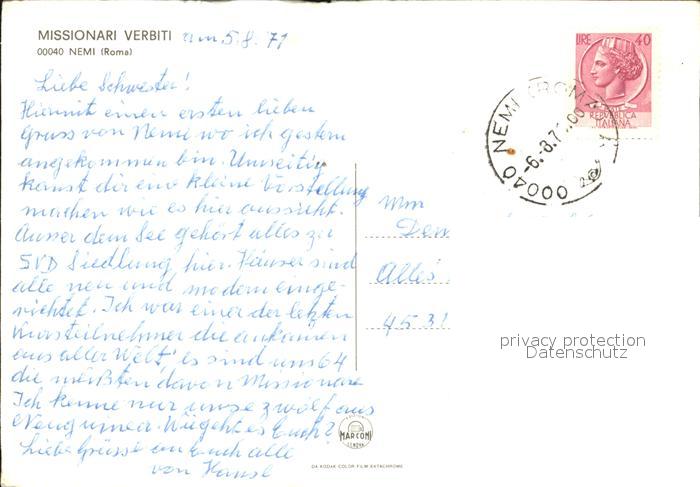 MISSIONARI VERBITI
00040 NEMI (Roma)
am 5.8.71
Liebe Schwester!
Hiermit einen ersten lieben
Gruss von Nemi wo ich gestern
angekommen bin. Umseitig
kanst dir eine kleine Vorstellung
machen wie es hier aussieht.
Ausser dem See gehört alles zur
SVD Siedlung hier. Häuser sind
alle neu und modern einge-
richtet. Ich war einer der letzten
Kursteilnehmer die ankamen
aus aller Welt, es sind uns 64
die meißten davon Missionare
Ich kenne nur unse zwölf aus
Neuguinea. Wie geht es Euch?
Liebe Grüsse an Euch alle
von Hansl
LIRE 40
REPVBBLICA
ITALIANA
00040 NEMI (ROMA)
-6.-8.7
Alles
4531
MARCONI
GENOVA
DA KODAK COLOR FILM EKTACHROME
privacy protection
Datenschutz